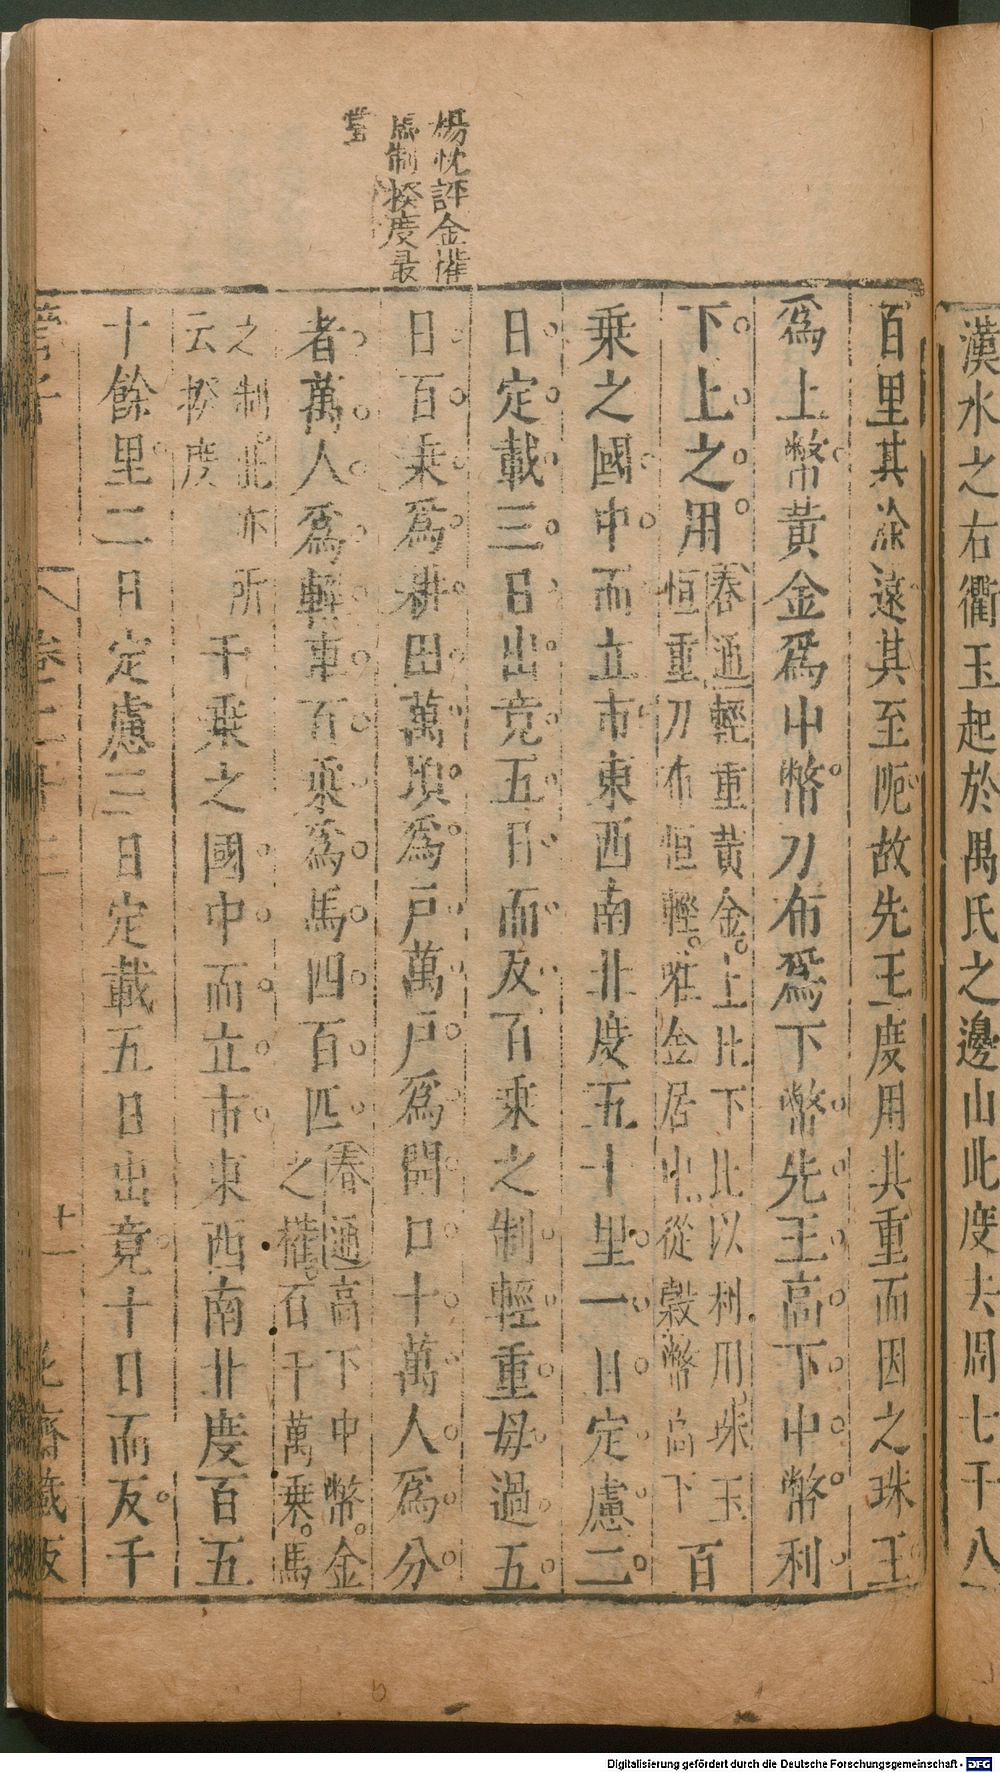 漢水之右衢玉起於禺氏之邊山此度去周七千八
百里其涂遠其至阨故先王度用其重而因之珠玉
爲上幣黃金爲中幣刀布爲下幣先王高下中幣利
下上之用
春通輕重黃金上比下比以利用珠玉
恒重刀布恒輕唯金居中從穀幣高下
百
乘之國中而立市東西南北度五十里一日定慮二
日定載三日出竟五日而反百乘之制輕重毋過五
日百乘爲耕田萬頃爲戶萬戶爲開口十萬人爲分
者萬人爲輕車百乘爲馬四百匹
春通高下中幣金
之權石千萬乘馬
之制此亦所
云揆度
千乘之國中而立市東西南北度百五
十餘里二日定慮三日定載五日出竟十日而反千
楊忱評金權
馬制揆度最
當
管子
卷二十三
十一
花齋藏板
Digitalisierung gefördert durch die Deutsche Forschungsgemeinschaft - DFG